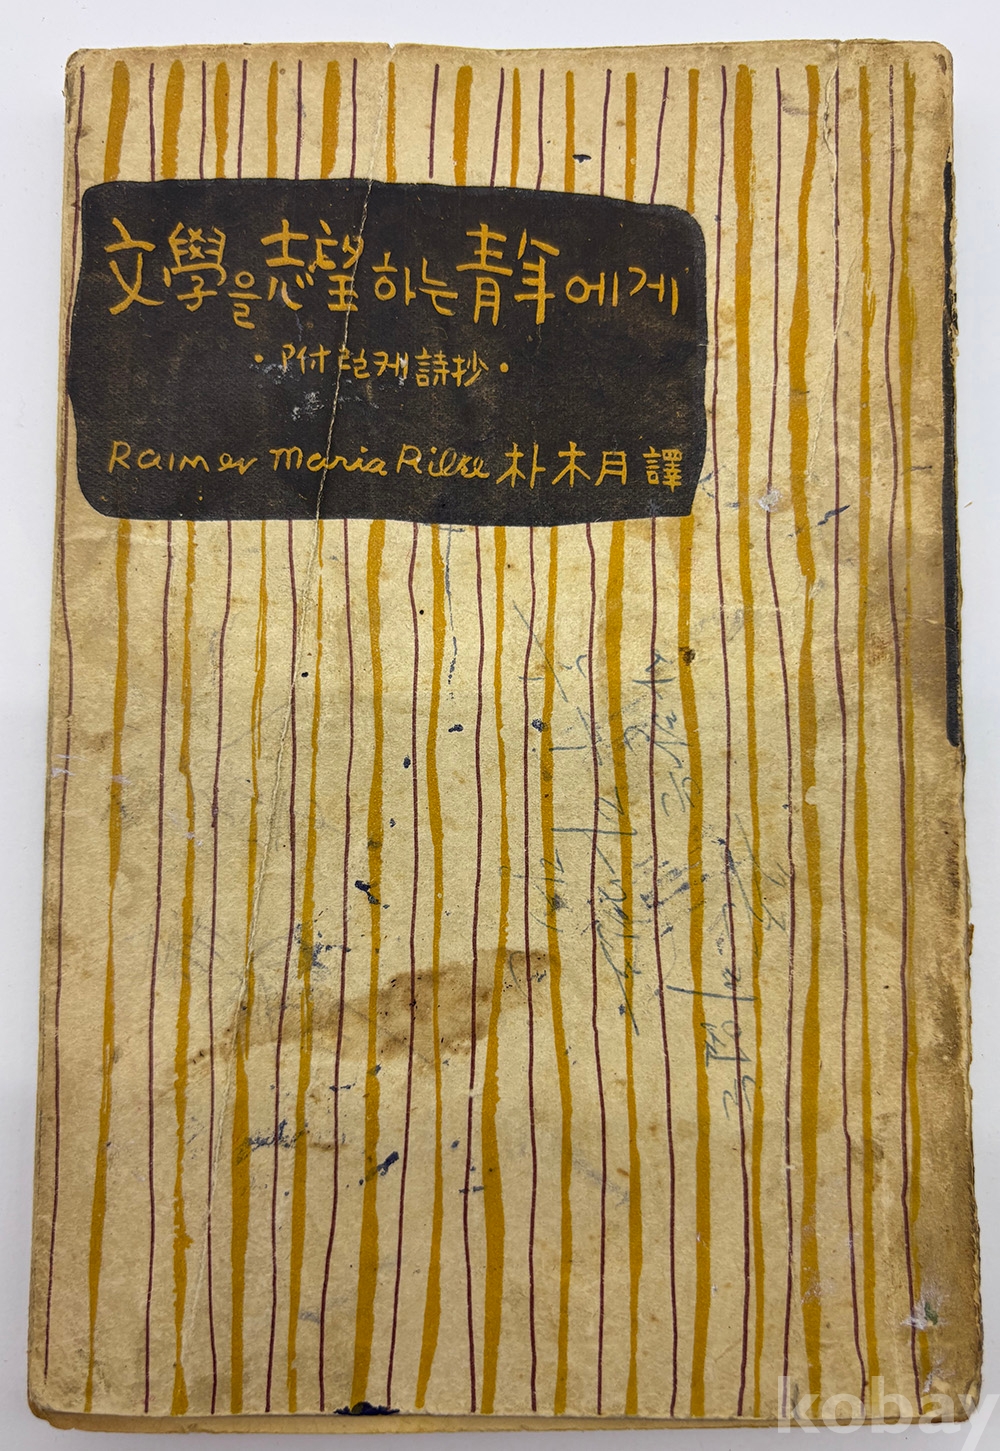 文學을 志望하는 靑年에게
·附 릴케 詩抄·
Rainer Maria Rilke 朴木月 譯
kobay